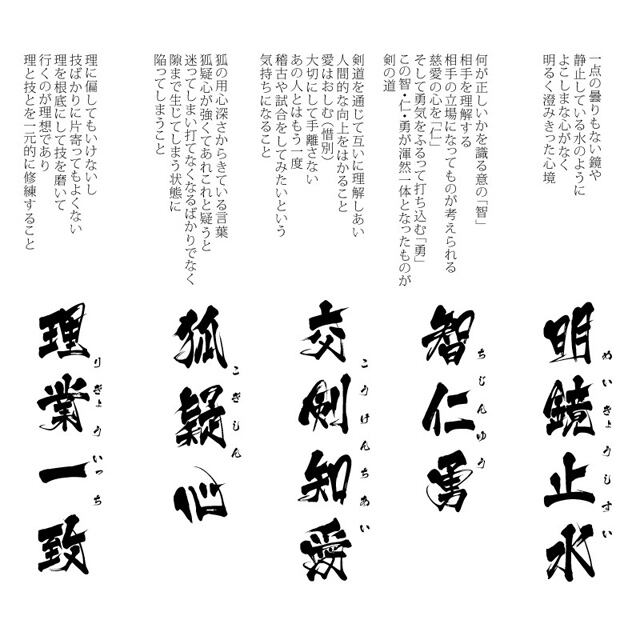 一点の曇りもない鏡や
静止している水のように
よこしまな心がなく
明るく澄みきった心境
明鏡止水
めいきょうしすい
何が正しいかを識る意の「智」
相手を理解する
相手の立場になってものが考えられる
慈愛の心を「仁」
そして勇気をふるって打ち込む「勇」
この智・仁・勇が渾然一体となったものが
剣の道
智仁勇
ちじんゆう
剣道を通じて互いに理解しあい
人間的な向上をはかること
愛はおしむ(惜別)
大切にして手離さない
あの人とはもう一度
稽古や試合をしてみたいという
気持ちになること
交剣知愛
こうけんちあい
狐の用心深さからきている言葉
狐疑心が強くてあれこれと疑うと
迷ってしまい打てなくなるばかりでなく
隙まで生じてしまう状態に
陥ってしまうこと
狐疑心
こぎしん
理に偏してもいけないし
技ばかりに片寄ってもよくない
理を根底にして技を磨いて
行くのが理想であり
理と技とを一元的に修練すること
理業一致
りぎょういっち